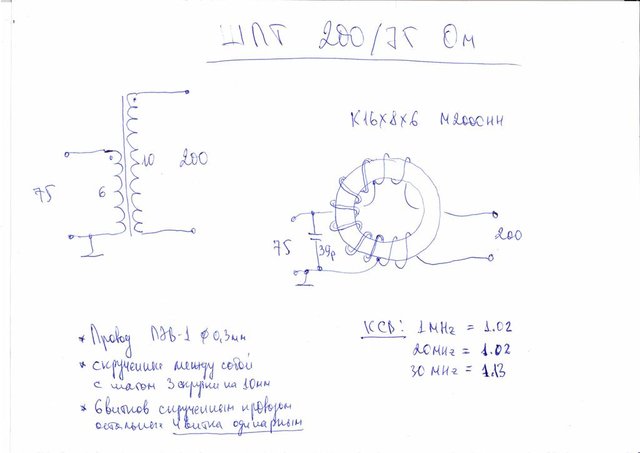 ШПТ 200/75 Ом
К16х8х6 М2000НН
10
200
6
75
75
39р
200
* Провод ПЭВ-1 ф 0,3мм
* скрученные между собой
с шагом 3 скрутки на 10мм
* 6 витков скрученным проводом
остальных 4 витка одинарным
КСВ: 1MHz = 1.02
20MHz = 1.02
30MHz = 1.13